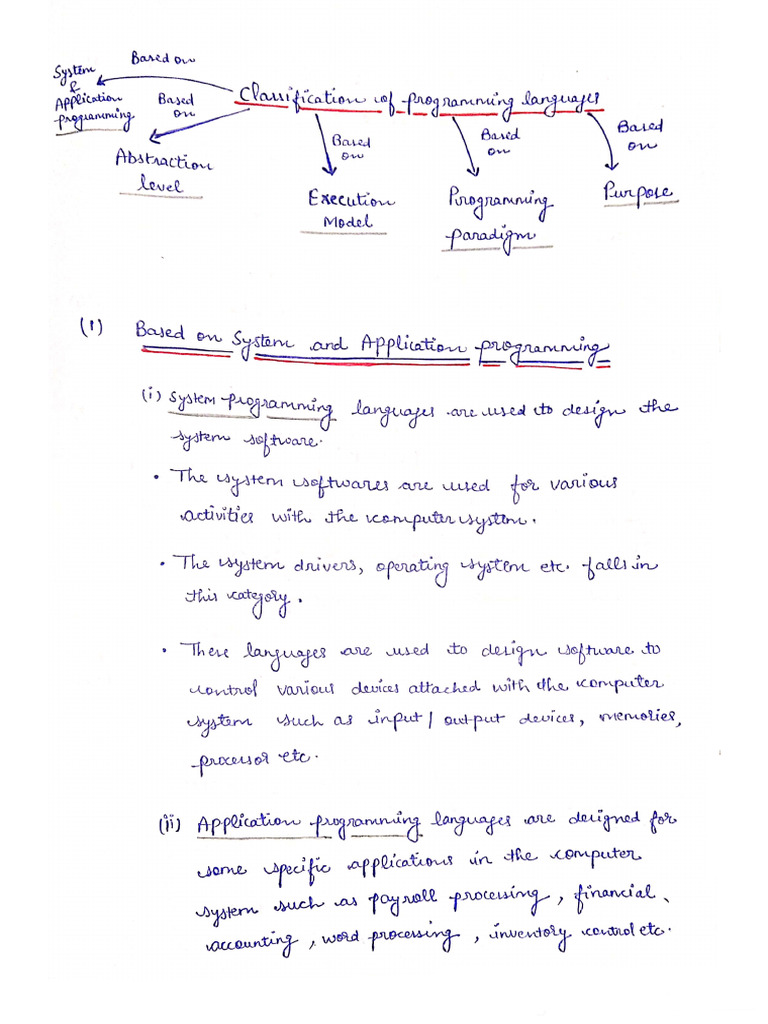 Classification of programming languages
Based on
System
&
Application
programming
Based
on
Abstraction
level
Based
on
Execution
Model
Based
on
Programming
paradigm
Based
on
Purpose
(1) Based on System and Application programming
(i) System programming languages are used to design the
system software.
• The system softwares are used for various
activities with the computer system.
• The system drivers, operating system etc. falls in
this category.
• These languages are used to design software to
control various devices attached with the computer
system such as input / output devices, memories,
processor etc.
(ii) Application programming languages are designed for
some specific applications in the computer
system such as payroll processing, financial
accounting, word processing, inventory control etc.